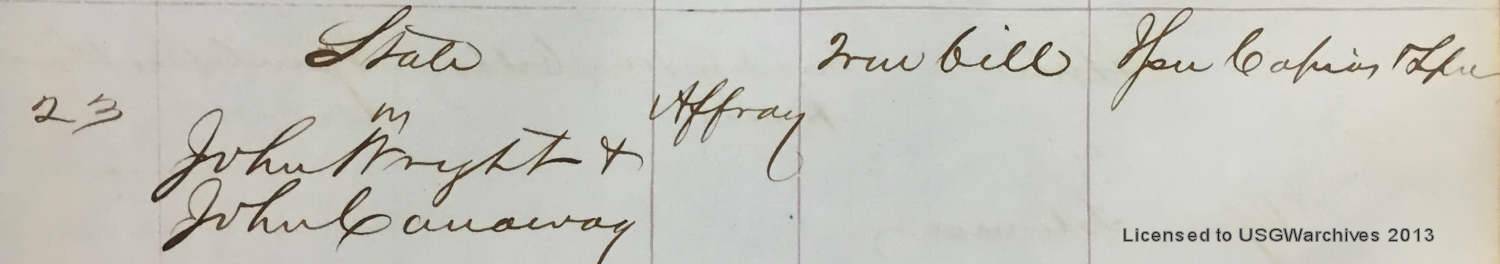 State
True bill
Capias
23
vs
Affray
John Wright &
John Canaway
Licensed to USGWarchives 2013